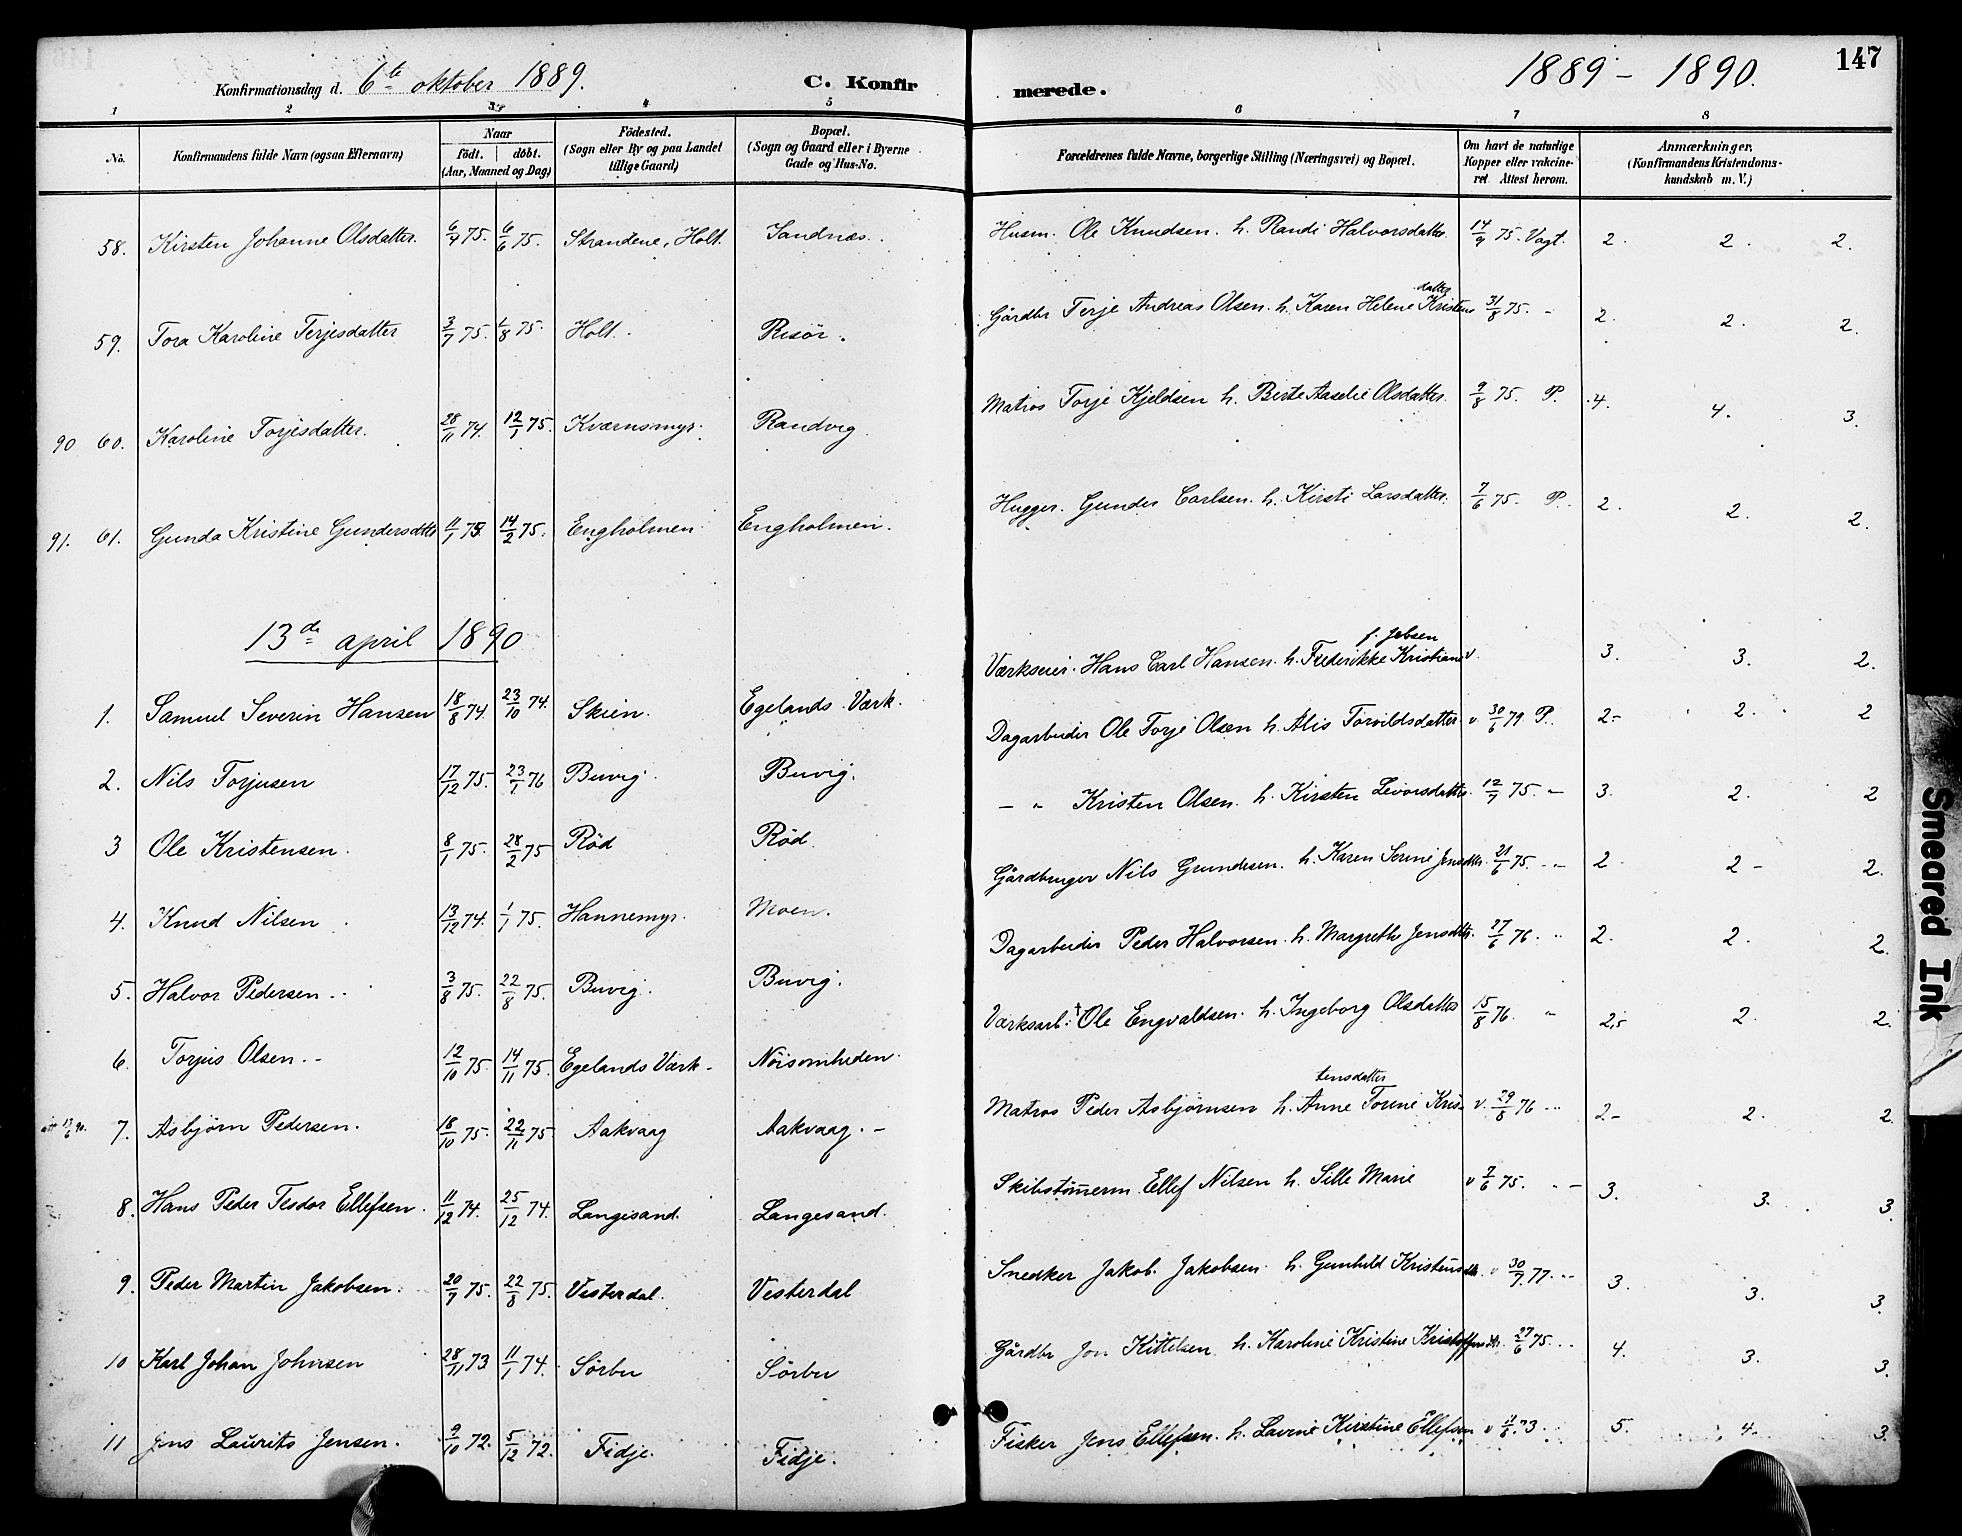 Konfirmationsdag d. 6te oktober 1889. C. Konfirmerede. 1889 - 1890. 147
1 2 3 4 5 6 7 8
No. Konfirmandens fulde Navn (ogsaa Efternavn) Naar födt. döbt. (Aar, Maaned og Dag) Födested. (Sogn eller By og paa Landet tillige Gaard) Bopæl. (Sogn og Gaard eller i Byerne Gade og Hus-No. Forældrenes fulde Navne, borgerlige Stilling (Næringsvei) og Bopæl. Om havt de naturlige Kopper eller vakcineret Attest herom. Anmærkninger. (Konfirmandens Kristendomskundskab m. V.)
58. Kirsten Johanne Olsdatter. 6/4 75. 6/6 75. Strandene, Holt. Sandnæs. Husm. Ole Knudsen. h. Randi Halvorsdatter. 14/9 75. Vagt. 2. 2. 2.
59. Tora Karoline Terjesdatter 3/7 75. 1/8 75. Holt. Risör. Gårdbr Terje Andreas Olsen. h. Karen Helene Kristensdatter 31/8 75. - 2. 2. 2.
90 60. Karoline Torjesdatter. 28/11 74. 12/1 75. Kværnsmyr. Randvig Matros Torje Kjeldsen h. Berte Aaselie Olsdatter. 9/8 75. P. 4. 4. 3.
91. 61. Gunda Kristine Gundersdatter 11/1 75. 14/2 75. Engholmen. Engholmen. Hugger. Gunder Carlsen. h. Kirsti Larsdatter. 7/6 75. P. 2. 2. 2.
13de april 1890
1. Samuel Severin Hansen 18/8 74. 23/10 74. Skien. Egelands Værk. Værkseier. Hans Carl Hansen. h. Frederikke Kristiane f. Jebsen v. 3. 3. 2.
2. Nils Torjusen 17/12 75. 23/1 76 Buvig. Buvig. Dagarbeider Ole Torje Olsen h. Alis Torvildsdatter v 30/6 79 P. 2- 2. 2
3 Ole Kristensen. 8/1 75. 28/2 75 Röd Röd. - " Kristen Olsen. h. Kirsten Levorsdatter. 12/7 75. - 3. 2. 2
4. Knud Nilsen 13/12 74. 1/1 75. Hannemyr. Moen. Gårdbruger Nils Gundersen. h. Karen Serine Jensdtr. 21/6 75. - 2 2 - 2.
5. Halvor Pedersen. 3/8 75. 22/8 75. Buvig. Buvig. Dagarbeider Peder Halvorsen. h. Margrethe Jensdtr. 27/6 76. " 2. 2. 2.
6. Torjus Olsen. - 12/10 75. 14/11 75. Egelands Værk - Nöisomheden. Værksarb. † Ole Engvaldsen. h. Ingeborg Olsdatter 15/8 76. " 2,5 2. 2.
7. Asbjörn Pedersen. 18/10 75. 22/11 75. Aakvaag Aakvaag. - Matros Peder Asbjörnsen h. Anne Torine Kristensdatter v. 29/8 76 " 2- 2. 2.
8. Hans Peder Tesdor Ellefsen. 11/12 74. 25/12 74. Langesand. Langesand. Skibstömerm. Ellef Nilsen h. Sille Marie v 7/6 75. " - 3. 3. 3.
9. Peder Martin Jakobsen. 20/7 75. 22/8 75. Vesterdal. Vesterdal Snedker Jakob Jakobsen. h. Gunhild Kristensdtr. v 30/7 77. - 3. 3. 3.
10 Karl Johan Johnsen 28/11 73 11/1 74. Sörbu Sörbu Gårdbr Jon Kittelsen. h. Karoline Kristine Kristoffersdtr. 27/6 75. 4. 3. 3.
11 Jens Laurits Jensen. 9/10 72. 5/12 72. Fidje. Fidje. Fisker Jens Ellefsen. h. Lavine Kirstine Ellefsen v 11/6 73 5. 4. 3.
Smeared Ink